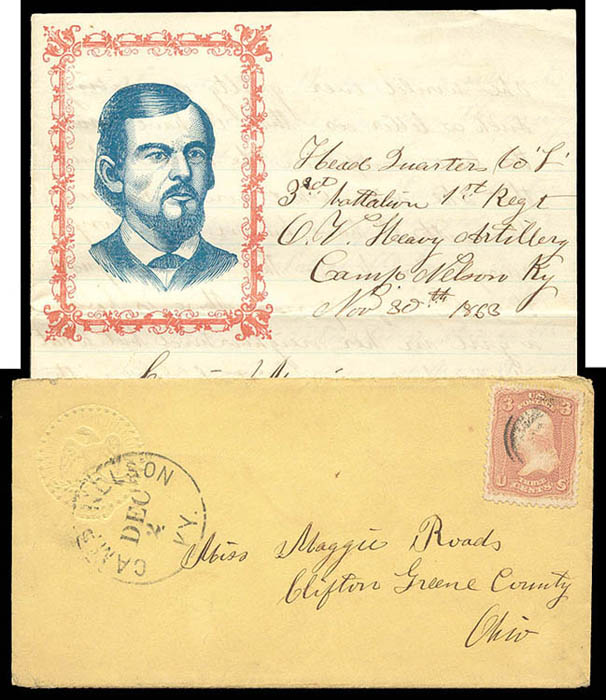 Head Quarters Co "L"
3rd battalion 1st Regt
O. V. Heavy Artillery
Camp Nelson Ky
Nov 30th 1863
3 U.S. POSTAGE 3
U THREE CENTS S
CAMP NELSON KY.
DEC
2
Miss Maggie Roads
Clifton Greene County
Ohio